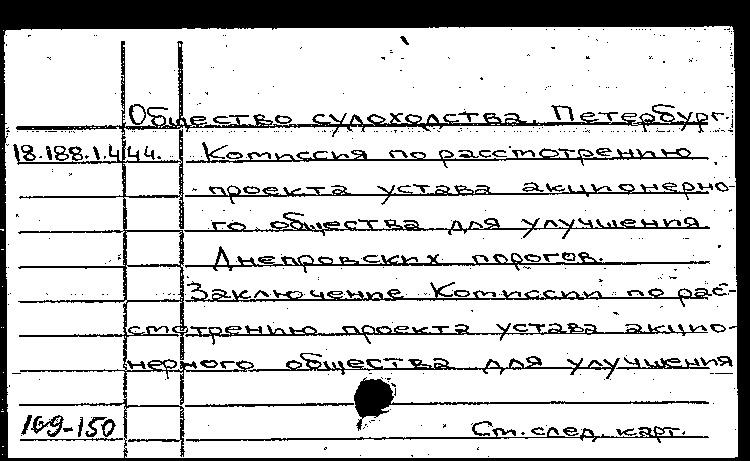 Общество судоходства. Петербург.
18.188.1.444. Комиссия по рассмотрению
проекта устава акционерно-
го общества для улучшения
Днепровских порогов.
Заключение Комиссии по рас-
смотрению проекта устава акцио-
нерного общества для улучшения
169-150 См. след. карт.